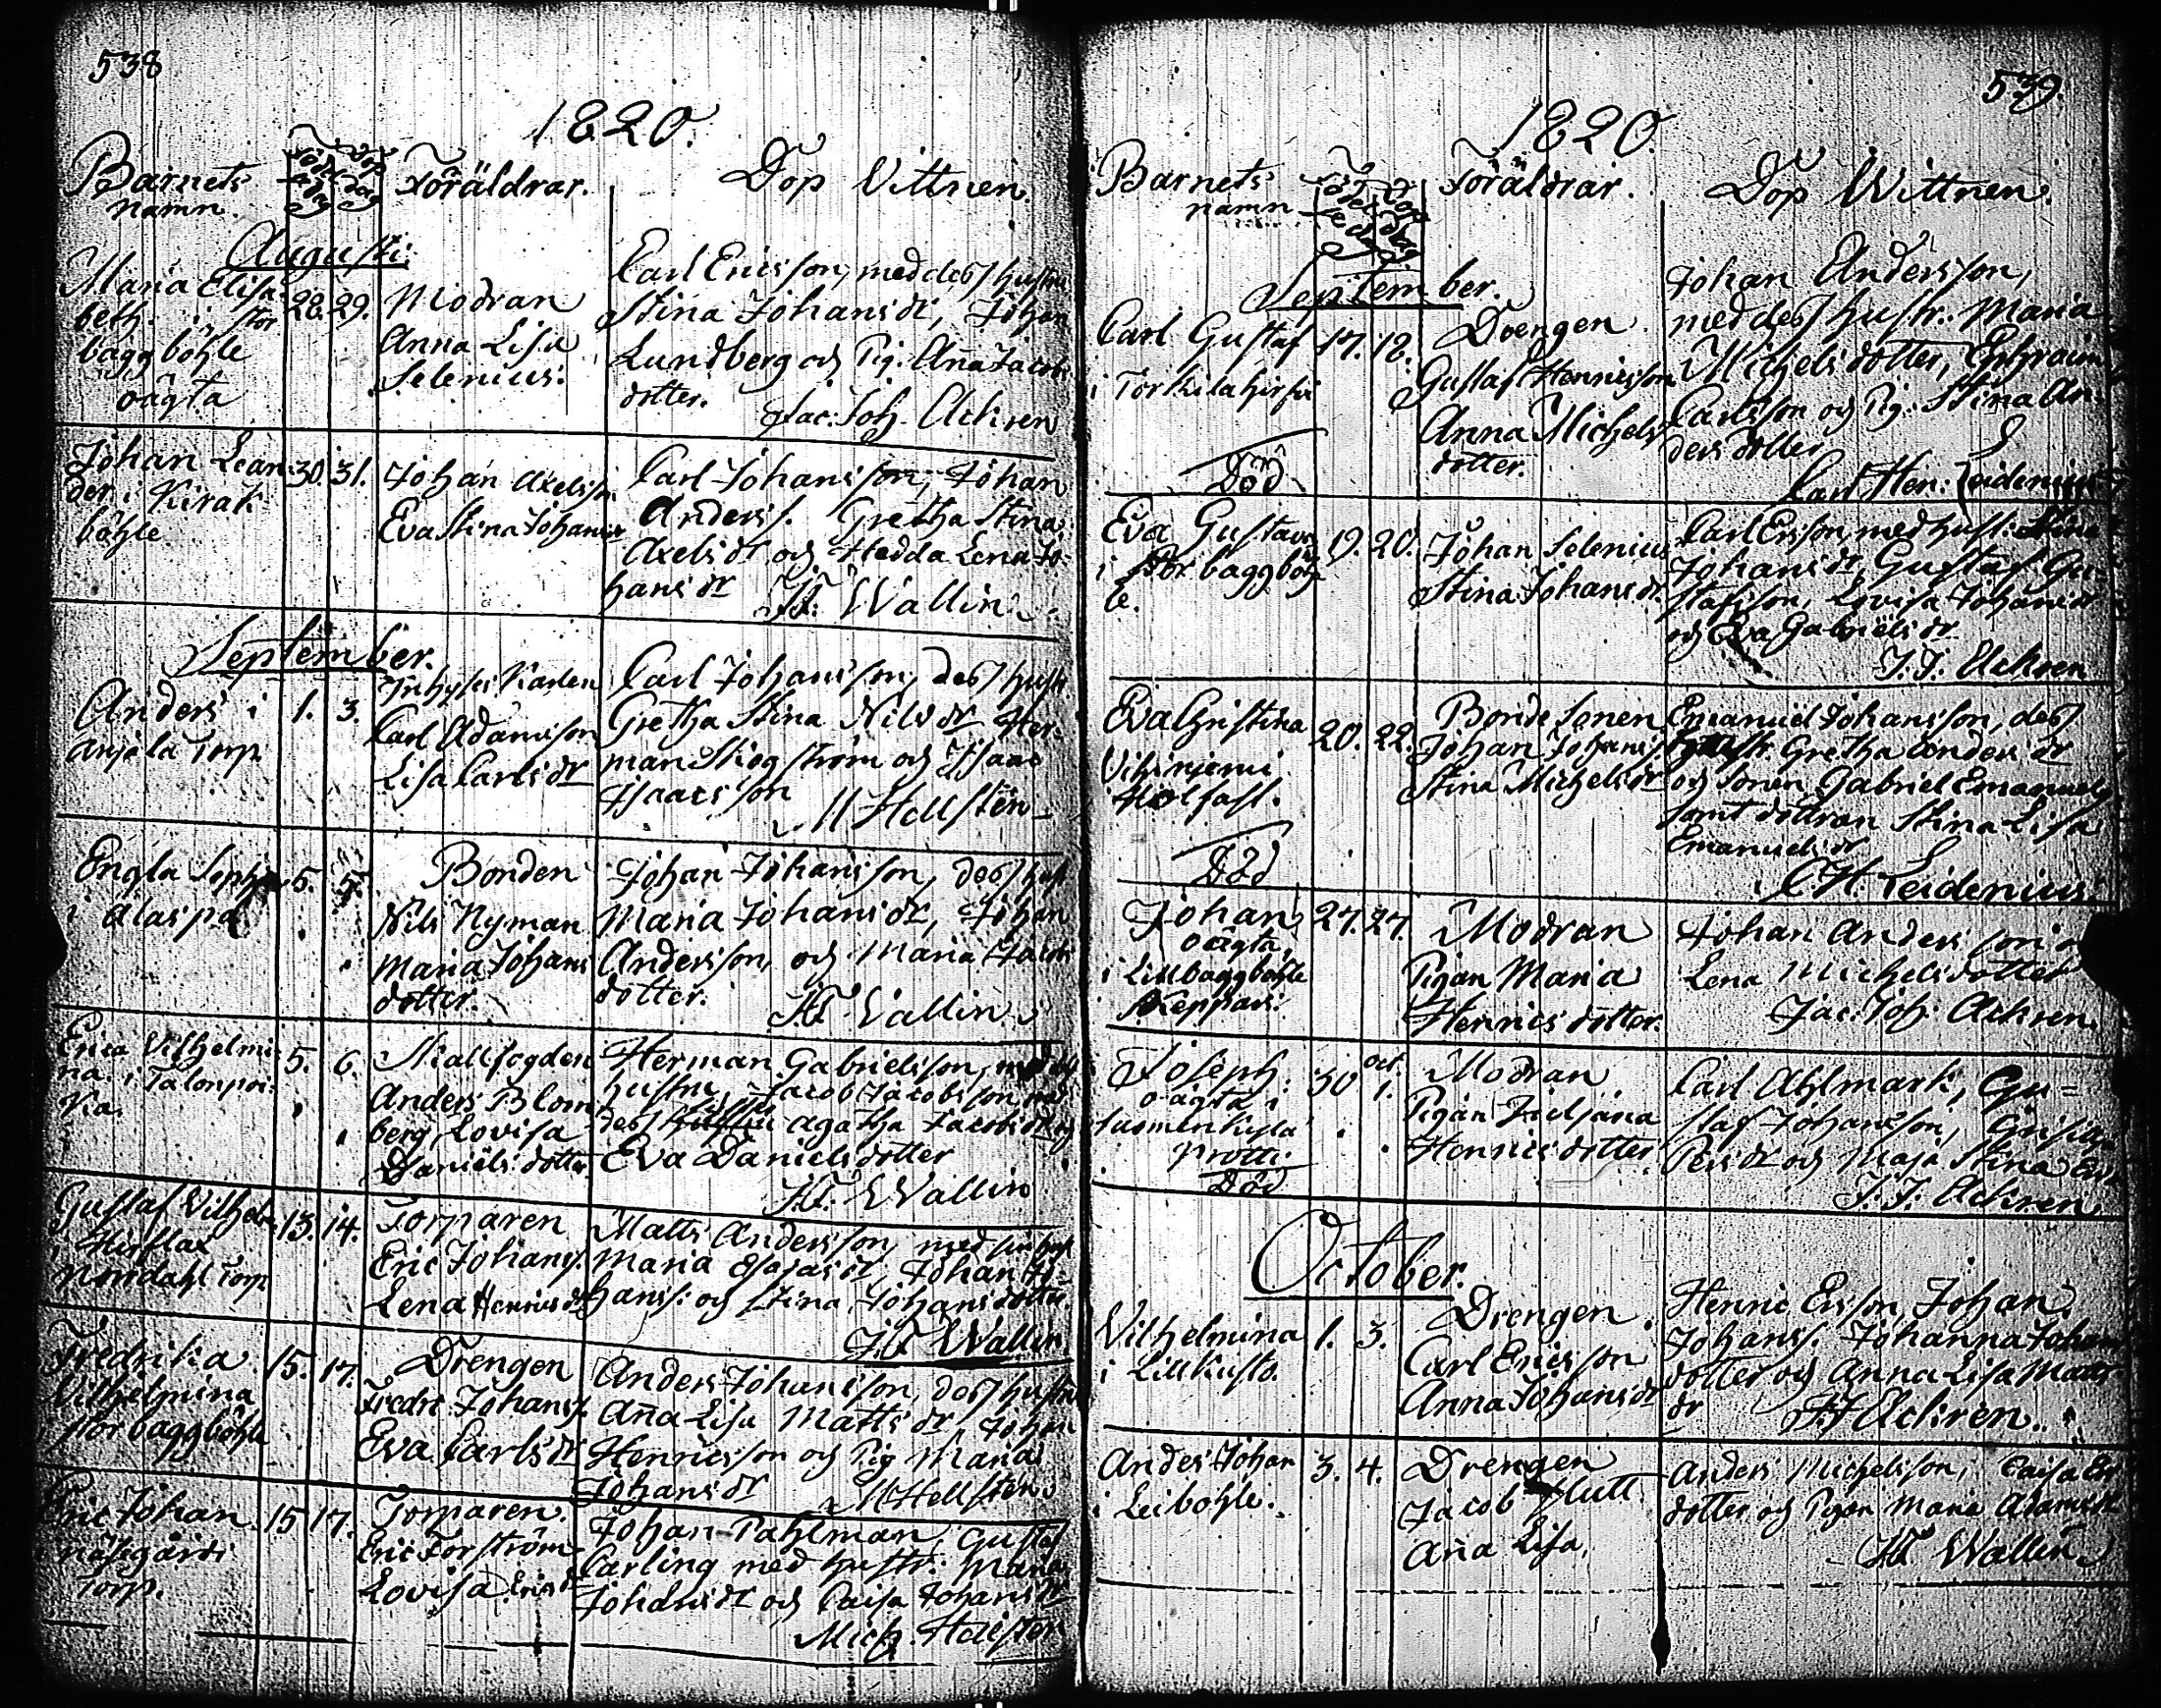 538
1820.
Barnets namn.
Födelse dag
Dop dag
Föräldrar.
Dop Vittnen.
Augusti.
Maria Elisa-
beth. i Stor
baggböhle
oägta
28. 29.
Modran
Anna Lisa
Selenius.
Carl Ericsson, med dess hustru
Stina Johans dr, Johan
Lundberg och Pig. Anna Jacobs
dotter.
Jac: Joh. Ackren
Johan Lean-
der i Kirak-
böhle
30. 31.
Johan Axelsson
Eva Stina Johans dr
Carl Johansson, Johan
Anderss. Gretha Stina
Axels dr och Hedda Lena Jo-
hans dr
Wallin
September.
Anders i
Anjala Torp
1. 3.
Inhyses Karlen
Carl Adamsson
Lisa Carls dr
Carl Johansson, dess hustr
Gretha Stina Nils dr Her-
man Skogström och Isaac
Isaacsson
M Hellsten
Engla Sophia
i Alaspä
5. 5.
Bonden
Nils Nyman
Maria Johans
dotter.
Johan Johansson, dess hust
Maria Johans dr, Johan
Andersson, och Maria Jacobs
dotter.
Wallin
Erica Vilhelmi-
na. i Talonpoi-
ka.
5. 6.
Skallfogden
Anders Blom-
berg, Lovisa
Daniels dotter
Herman Gabrielsson, med
hustru Jacob Jacobsson med
dess hustru Agatha Jacobs dr och
Eva Daniels dotter
Wallin
Gustaf Vilhelm
i Hirflax
Nordahl Torp
13. 14.
Torparen
Eric Johanss.
Lena Henrics dr
Matts Andersson, med
Maria Esaias dr, Johan Jo-
hanss: och Stina Johans dotter.
Wallin
Fredrika
Vilhelmina
Storbaggböhle
15. 17.
Drengen
Fredr: Johanss.
Eva Carls dr
Anders Johansson, dess hustru
Anna Lisa Matts dr Johan
Henricsson och Pig Maria
Johans dr
M Hellsten
Eric Johan
näsegårds
Torp.
15 17.
Torparen.
Eric Forström
Lovisa Erics dr
Johan Pahlman, Gustaf
Carling med hustr: Maria
Johans dr och Caisa Johans dr
Mich. Hellsten
539.
1820.
Barnets namn
Födelse dag
Dop dag
Föräldrar.
Dop Wittnen.
September.
Carl Gustaf
i Torkila
Död
17. 18.
Drengen
Gustaf Henricsson
Anna Michels
dotter.
Johan Andersson,
med dess hustr: Maria
Michels dotter, Ephraim
Carlsson och Pig: Stina An-
ders dotter
Carl Hen: Leidenius
Eva Gustava
i Stor baggböh-
le.
19. 20.
Johan Selenius
Stina Johans dr.
Carl Ersson, med hust: Stina
Johans dr, Gustaf Gu-
stafsson, Lovisa Johans dr
och Eva Gabriels dr
J. J: Ackren
Eva Christina
Vihinjemi
Död
20. 22.
Bonde Sonen
Johan Johanss
Stina Michels dr
Emanuel Johansson, dess
hustr. Gretha Anders dr
och Sonen Gabriel Emanuels
samt dottran Stina Lisa
Emanuels dr
C H. Leidenius
Johan
oägta,
i Lillbaggböhle
27. 27.
Modran
Pigan Maria
Henrics dotter.
Johan Andersson
Lena Michels dotter
Jac: Joh: Ackren
Joseph
oägta i
Suomenkylä
Protti.
Död
30 oct 1.
Modran
Pigan Juliana
Henrics dotter
Carl Ahlmark, Gu-
staf Johansson,
Pers dr och Maja Stina
J. J: Ackren.
October.
Vilhelmina
i Lillkusto.
1. 3.
Drengen
Carl Ericsson
Anna Johans dr
Henric Ersson, Johan
Johanss. Johanna Johans
dotter och Anna Lisa Matts
dr
J J Ackren.
Anders Johan
i Leiböhle.
3. 4.
Drengen
Jacob Slutt
Anna Lisa,
Anders Michelsson, Caisa Er
dotter och Pigan Maria Adams dr
Wallin